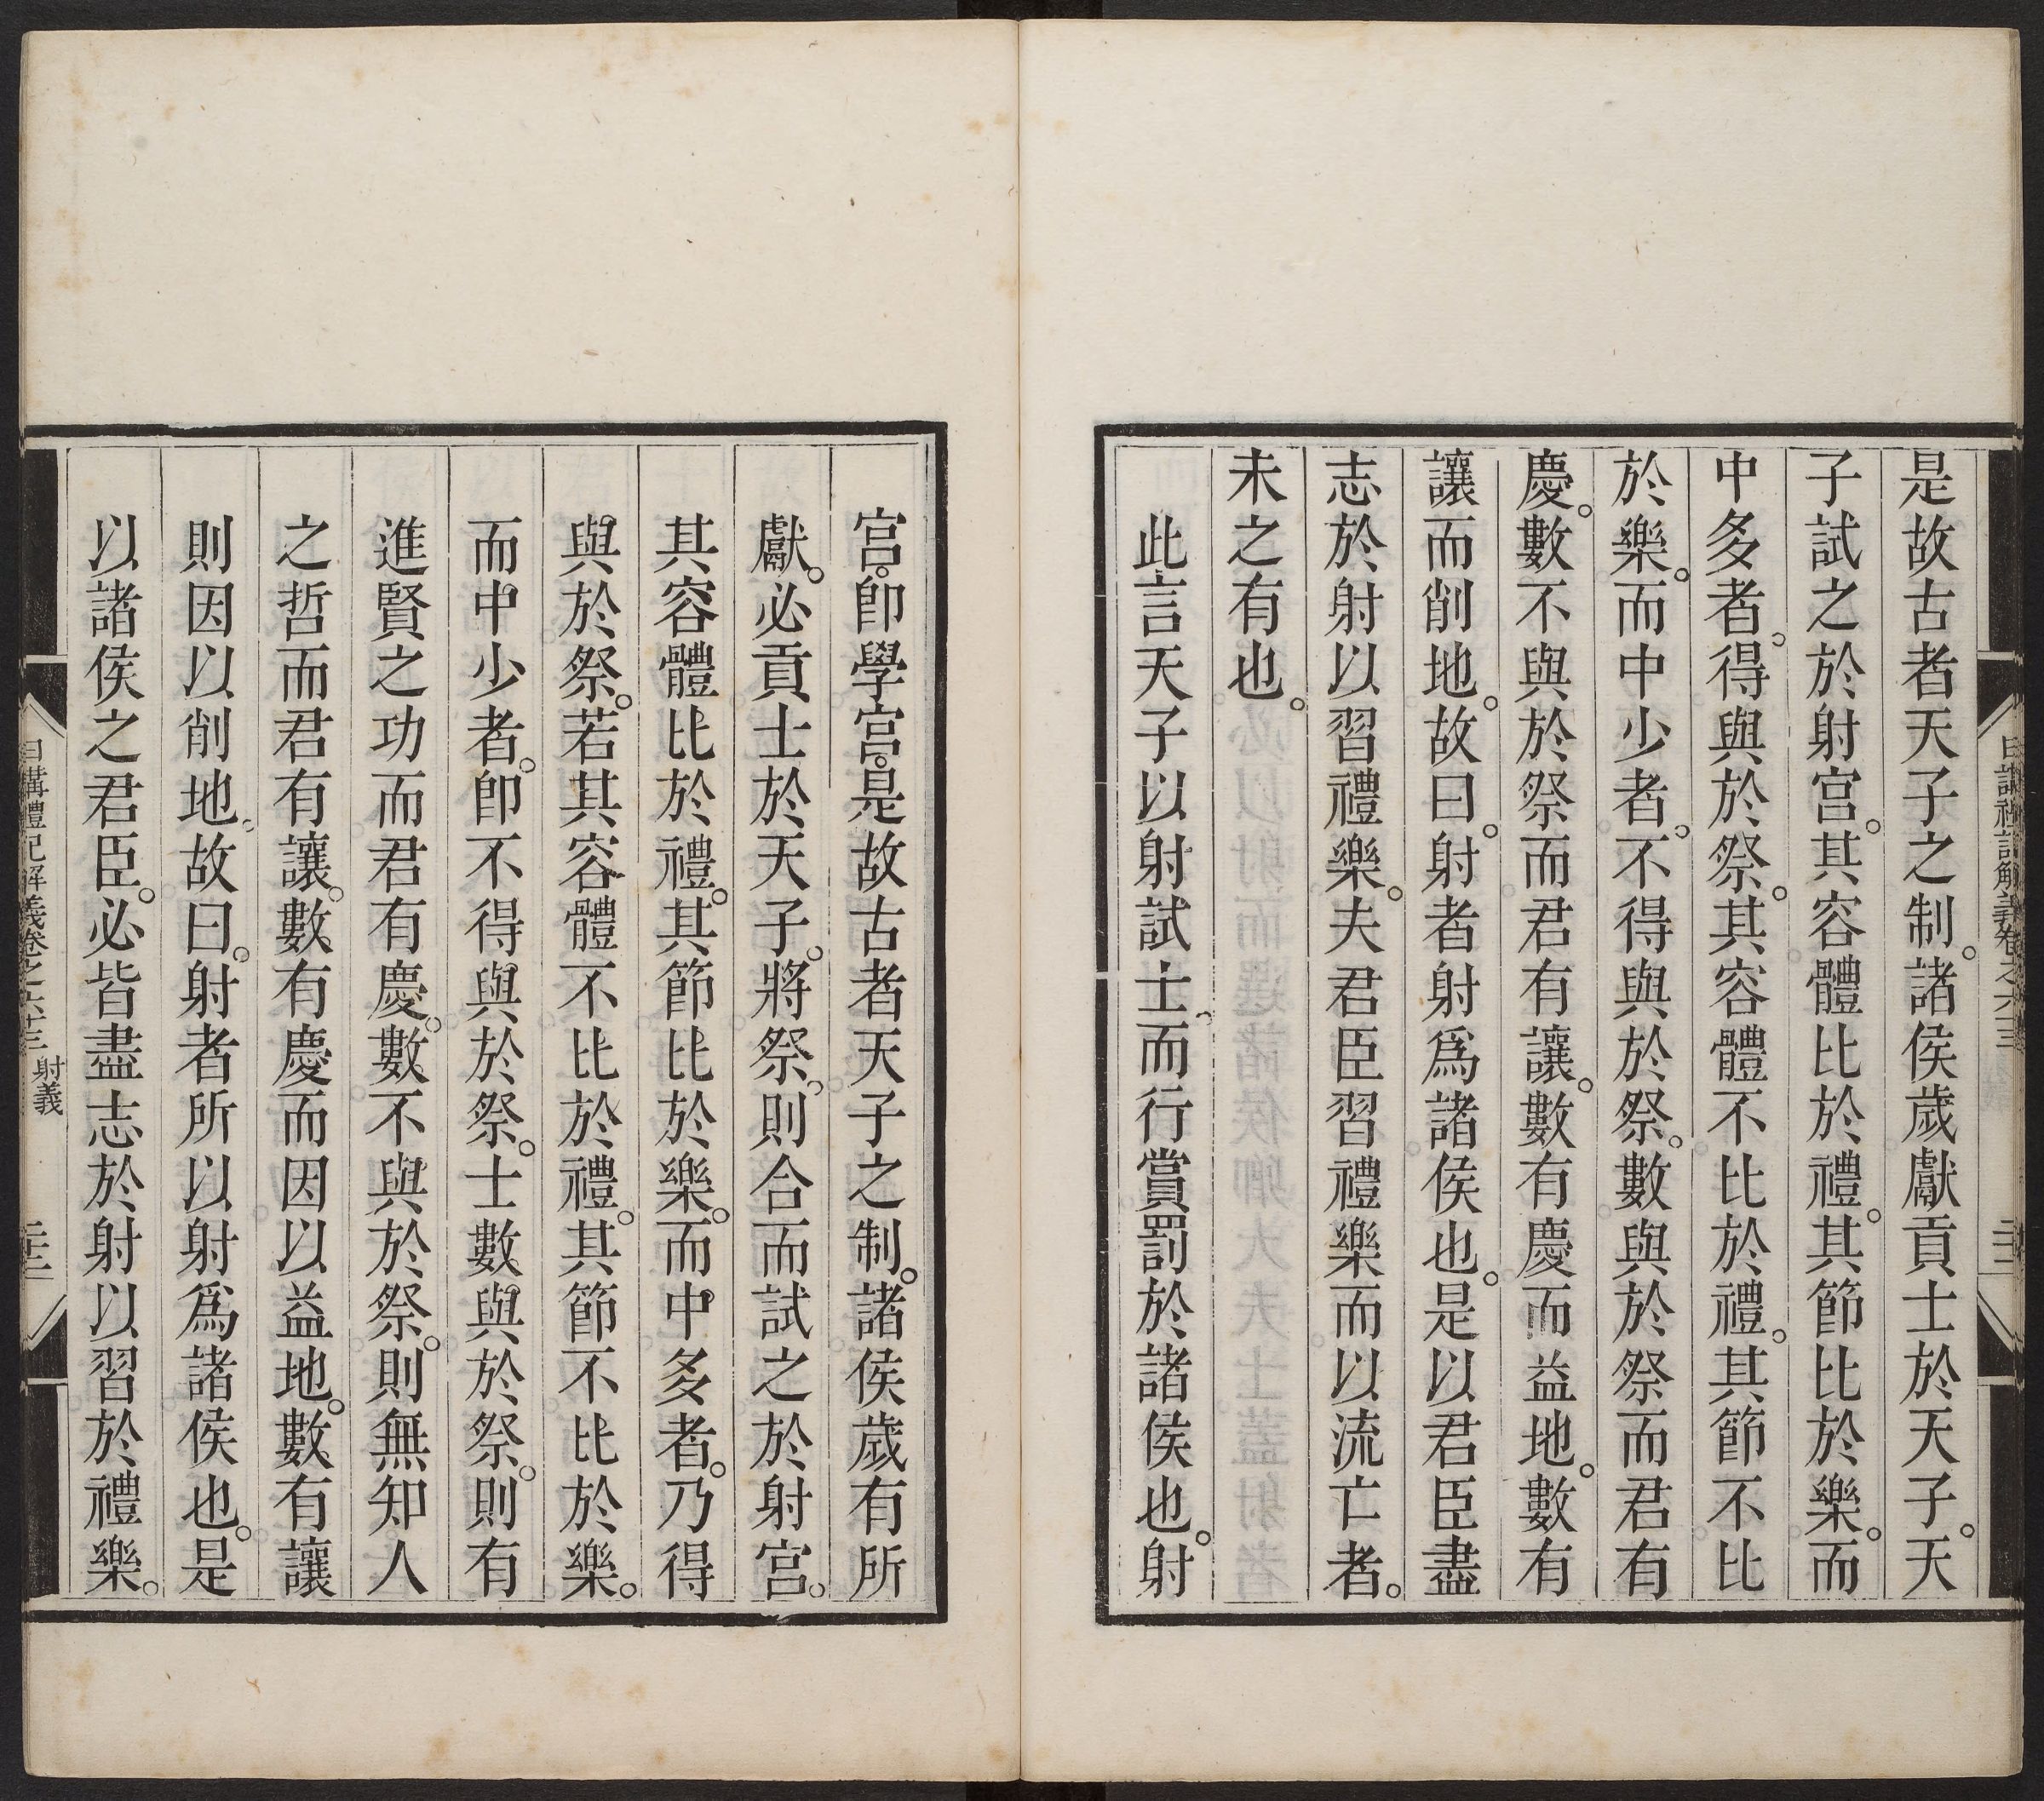 是故古者天子之制。諸侯歲獻貢士於天子。天
子試之於射宮。其容體比於禮。其節比於樂。而
中多者。得與於祭。其容體不比於禮。其節不比
於樂。而中少者。不得與於祭。數與於祭而君有
慶。數不與於祭而君有讓。數有慶而益地。數有
讓而削地。故曰。射者射爲諸侯也。是以君臣盡
志於射以習禮樂。夫君臣習禮樂而以流亡者。
未之有也。
此言天子以射試士。而行賞罰於諸侯也。射
宮。卽學宮。是故古者天子之制。諸侯歲有所
獻。必貢士於天子。將祭。則合而試之於射宮。
其容體比於禮。其節比於樂。而中多者。乃得
與於祭。若其容體不比於禮。其節不比於樂。
而中少者。卽不得與於祭。士數與於祭。則有
進賢之功而君有慶。數不與於祭。則無知人
之哲而君有讓。數有慶而因以益地。數有讓
則因以削地。故曰。射者所以射爲諸侯也。是
以諸侯之君臣。必皆盡志於射以習於禮樂。
日講禮記解義卷之六十三 射義